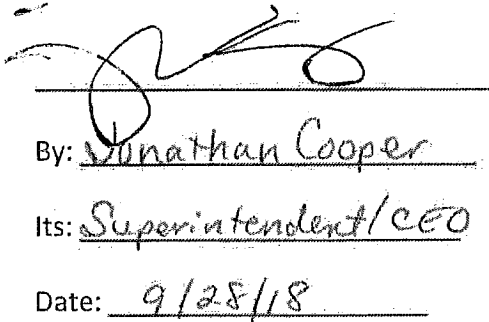 By: Jonathan Cooper
Its: Superintendent/CEO
Date: 9/28/18